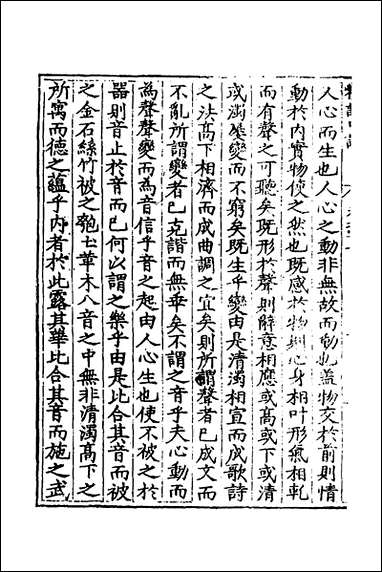 人心而生也人心之動非無故而動也盖物交於前則情
動於内實物使之然也既感於物則心身相叶形氣相軋
而有聲之可聽矣既形於聲則辭意相應或高或下或清
或濁變而不窮矣既生乎變由是清濁相宣而成歌詩
之法高下相濟而成曲調之宜矣則所謂聲者已成文而
不亂所謂變者已克諧而無乖矣不謂之音乎夫心動而
為聲聲變而為音信乎音之起由人心生也使不被之於
器則音止於音而已何以謂之樂乎由是比合其音而被
之金石絲竹被之匏土革木八音之中無非清濁高下之
所寓而德之蘊乎内者於此露其華比合其音而施之武